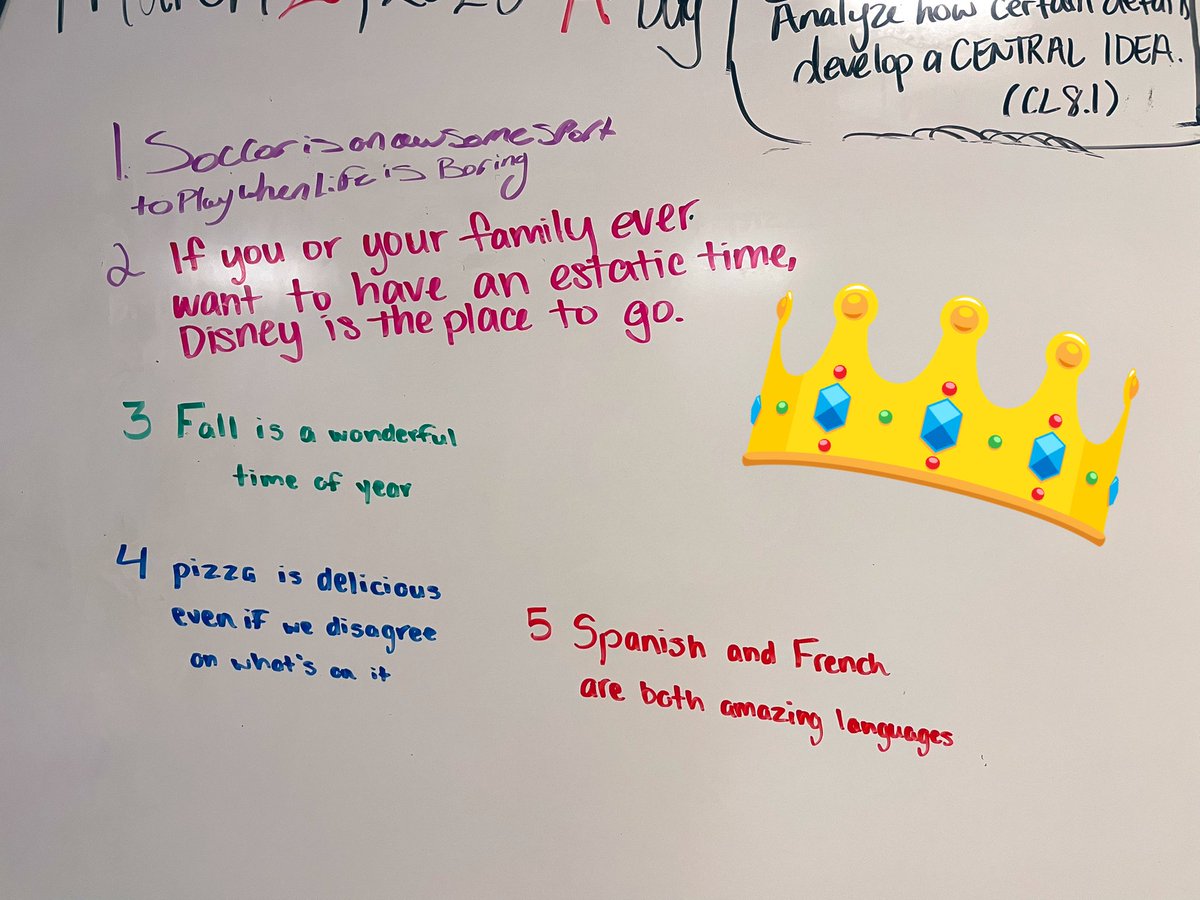 March 2, 2020 A Day
Analyze how certain details
develop a CENTRAL IDEA.
(CL8.1)
1. Soccor is on awsome sport
to Play when Life is Boring
2 If you or your family ever
want to have an estatic time,
Disney is the place to go.
3 Fall is a wonderful
time of year
4 pizza is delicious
even if we disagree
on what's on it
5 Spanish and French
are both amazing languages